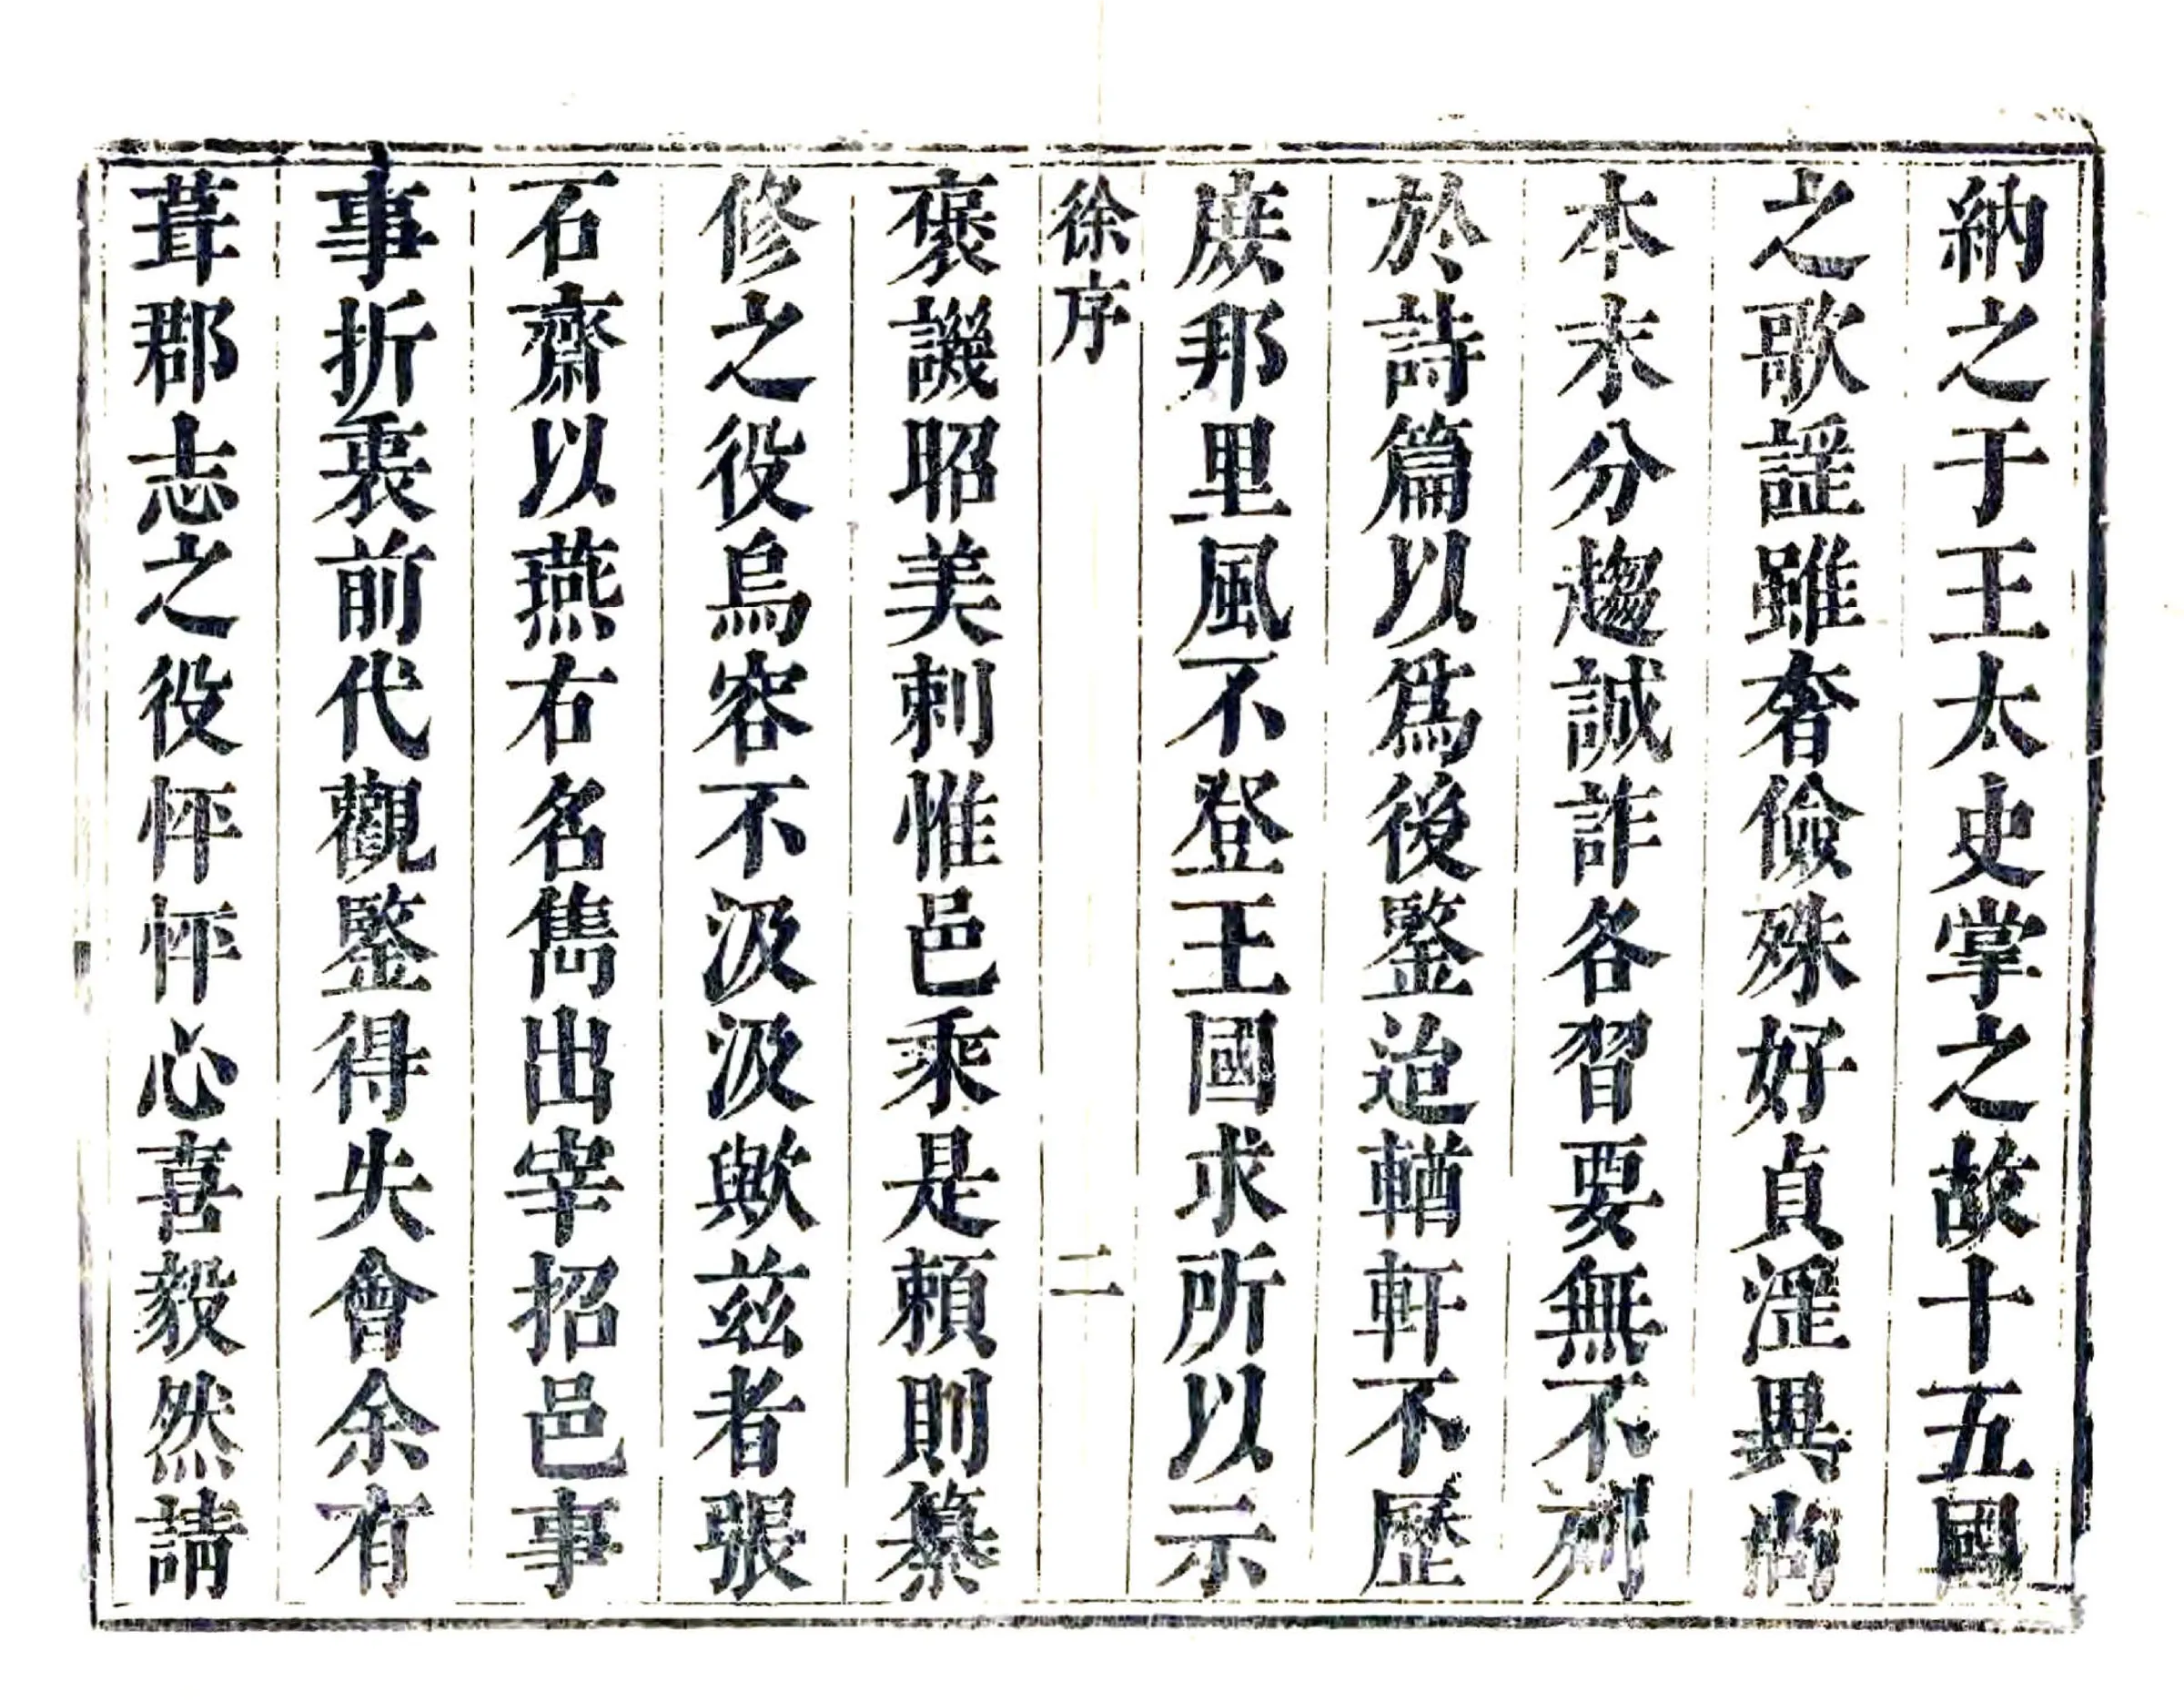 納之于王太史掌之故十五國
之歌謡雖奢儉殊好貞淫異尚
本末分趨誠詐各習要無不列
於詩篇以爲後鑒迨輶軒不歷
庻邦里風不登王國求所以示
徐序
二
褒譏昭美刺惟邑乘是頼則纂
修之役烏容不汲汲歟兹者張
石齋以燕右名雋出宰招邑事
事折衷前代觀鑒得失會余有
葺郡志之役怦怦心喜毅然請